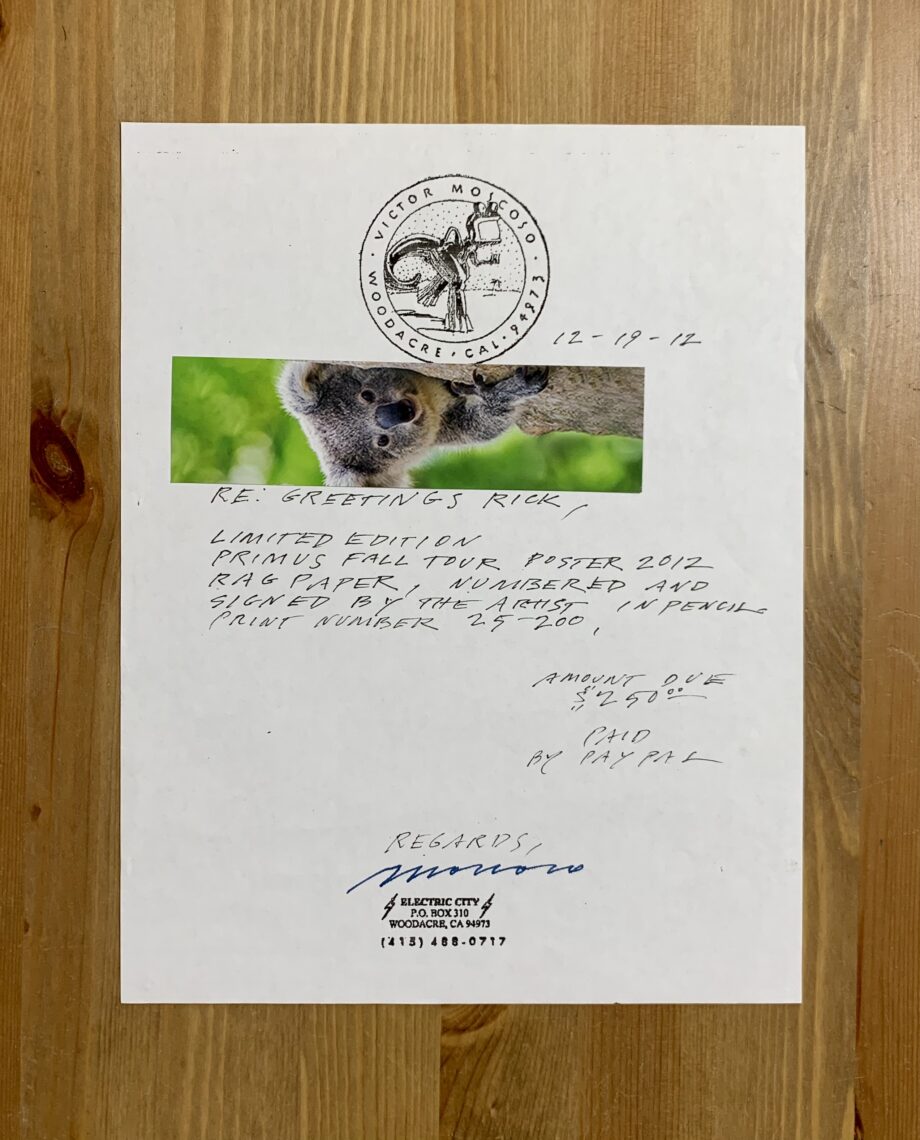 · VICTOR MOSCOSO ·
WOODACRE, CAL. 94973
12-19-12
RE: GREETINGS RICK,
LIMITED EDITION
PRIMUS FALL TOUR POSTER 2012
RAG PAPER, NUMBERED AND
SIGNED BY THE ARTIST IN PENCIL
PRINT NUMBER 25-200,
AMOUNT DUE
$250⁰⁰
PAID
BY PAYPAL
REGARDS,
Moscoso
ELECTRIC CITY
P.O. BOX 310
WOODACRE, CA 94973
(415) 488-0717